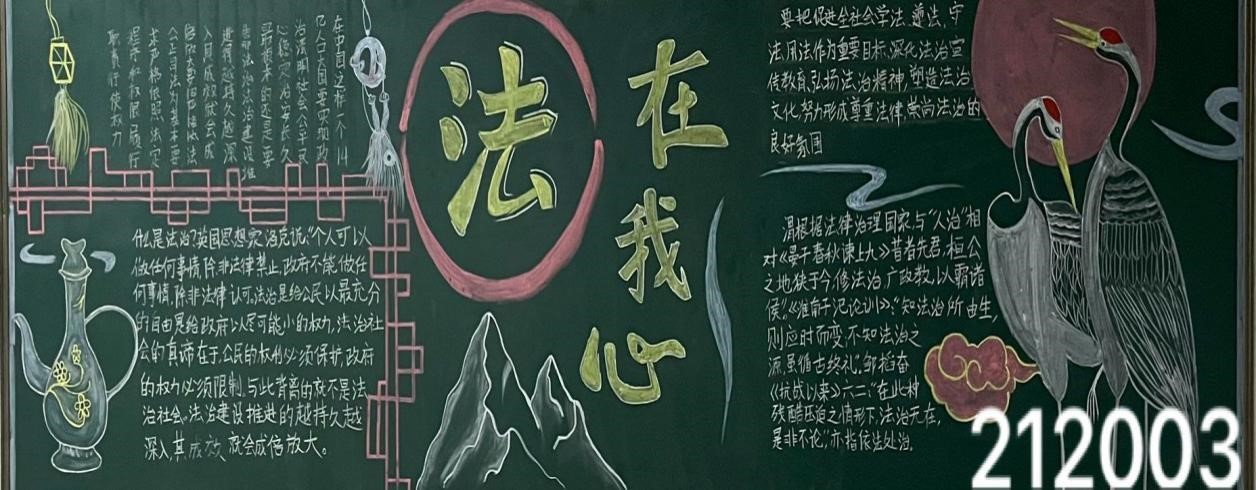 在中国这样一个14
亿人口大国,要实现政
治清明社会公平
心稳定长治久安
最根本的还是要
靠法治法治建设
推进得越持久越深
入其成效就会成
倍放大要坚持依法
公正司法为基本要
求严格依照法定
程序和权限履行
职责行使权力
法
在我心
要把促进全社会学法、遵法、守
法、用法作为重要目标,深化法治宣
传教育,弘扬法治精神,塑造法治
文化,努力形成尊重法律,崇尚法治的
良好氛围
什么是法治?英国思想家洛克说:“个人可以
做任何事情,除非法律禁止,政府不能做任
何事情,除非法律认可。法治是给公民以最充分
的自由是给政府以尽可能小的权力,法治社
会的真谛在于公民的权利必须保护,政府
的权力必须限制,与此背离的就不是法
治社会。法治建设推进的越持久越
深入,其成效就会成倍放大。
谓根据法律治理国家,与“人治”相
对《晏子春秋谏上九》昔者先君桓公
之地狭于今,修法治,广政教,以霸诸
侯。《淮南子·氾论训》:“知法治所由生,
则应时而变,不知法治之
源,虽循古终乱”。邹韬奋
《抗战以来》六二:“在此种
残酷压迫之情形下,法治无在,
是非不论”,亦指依法处治。
212003